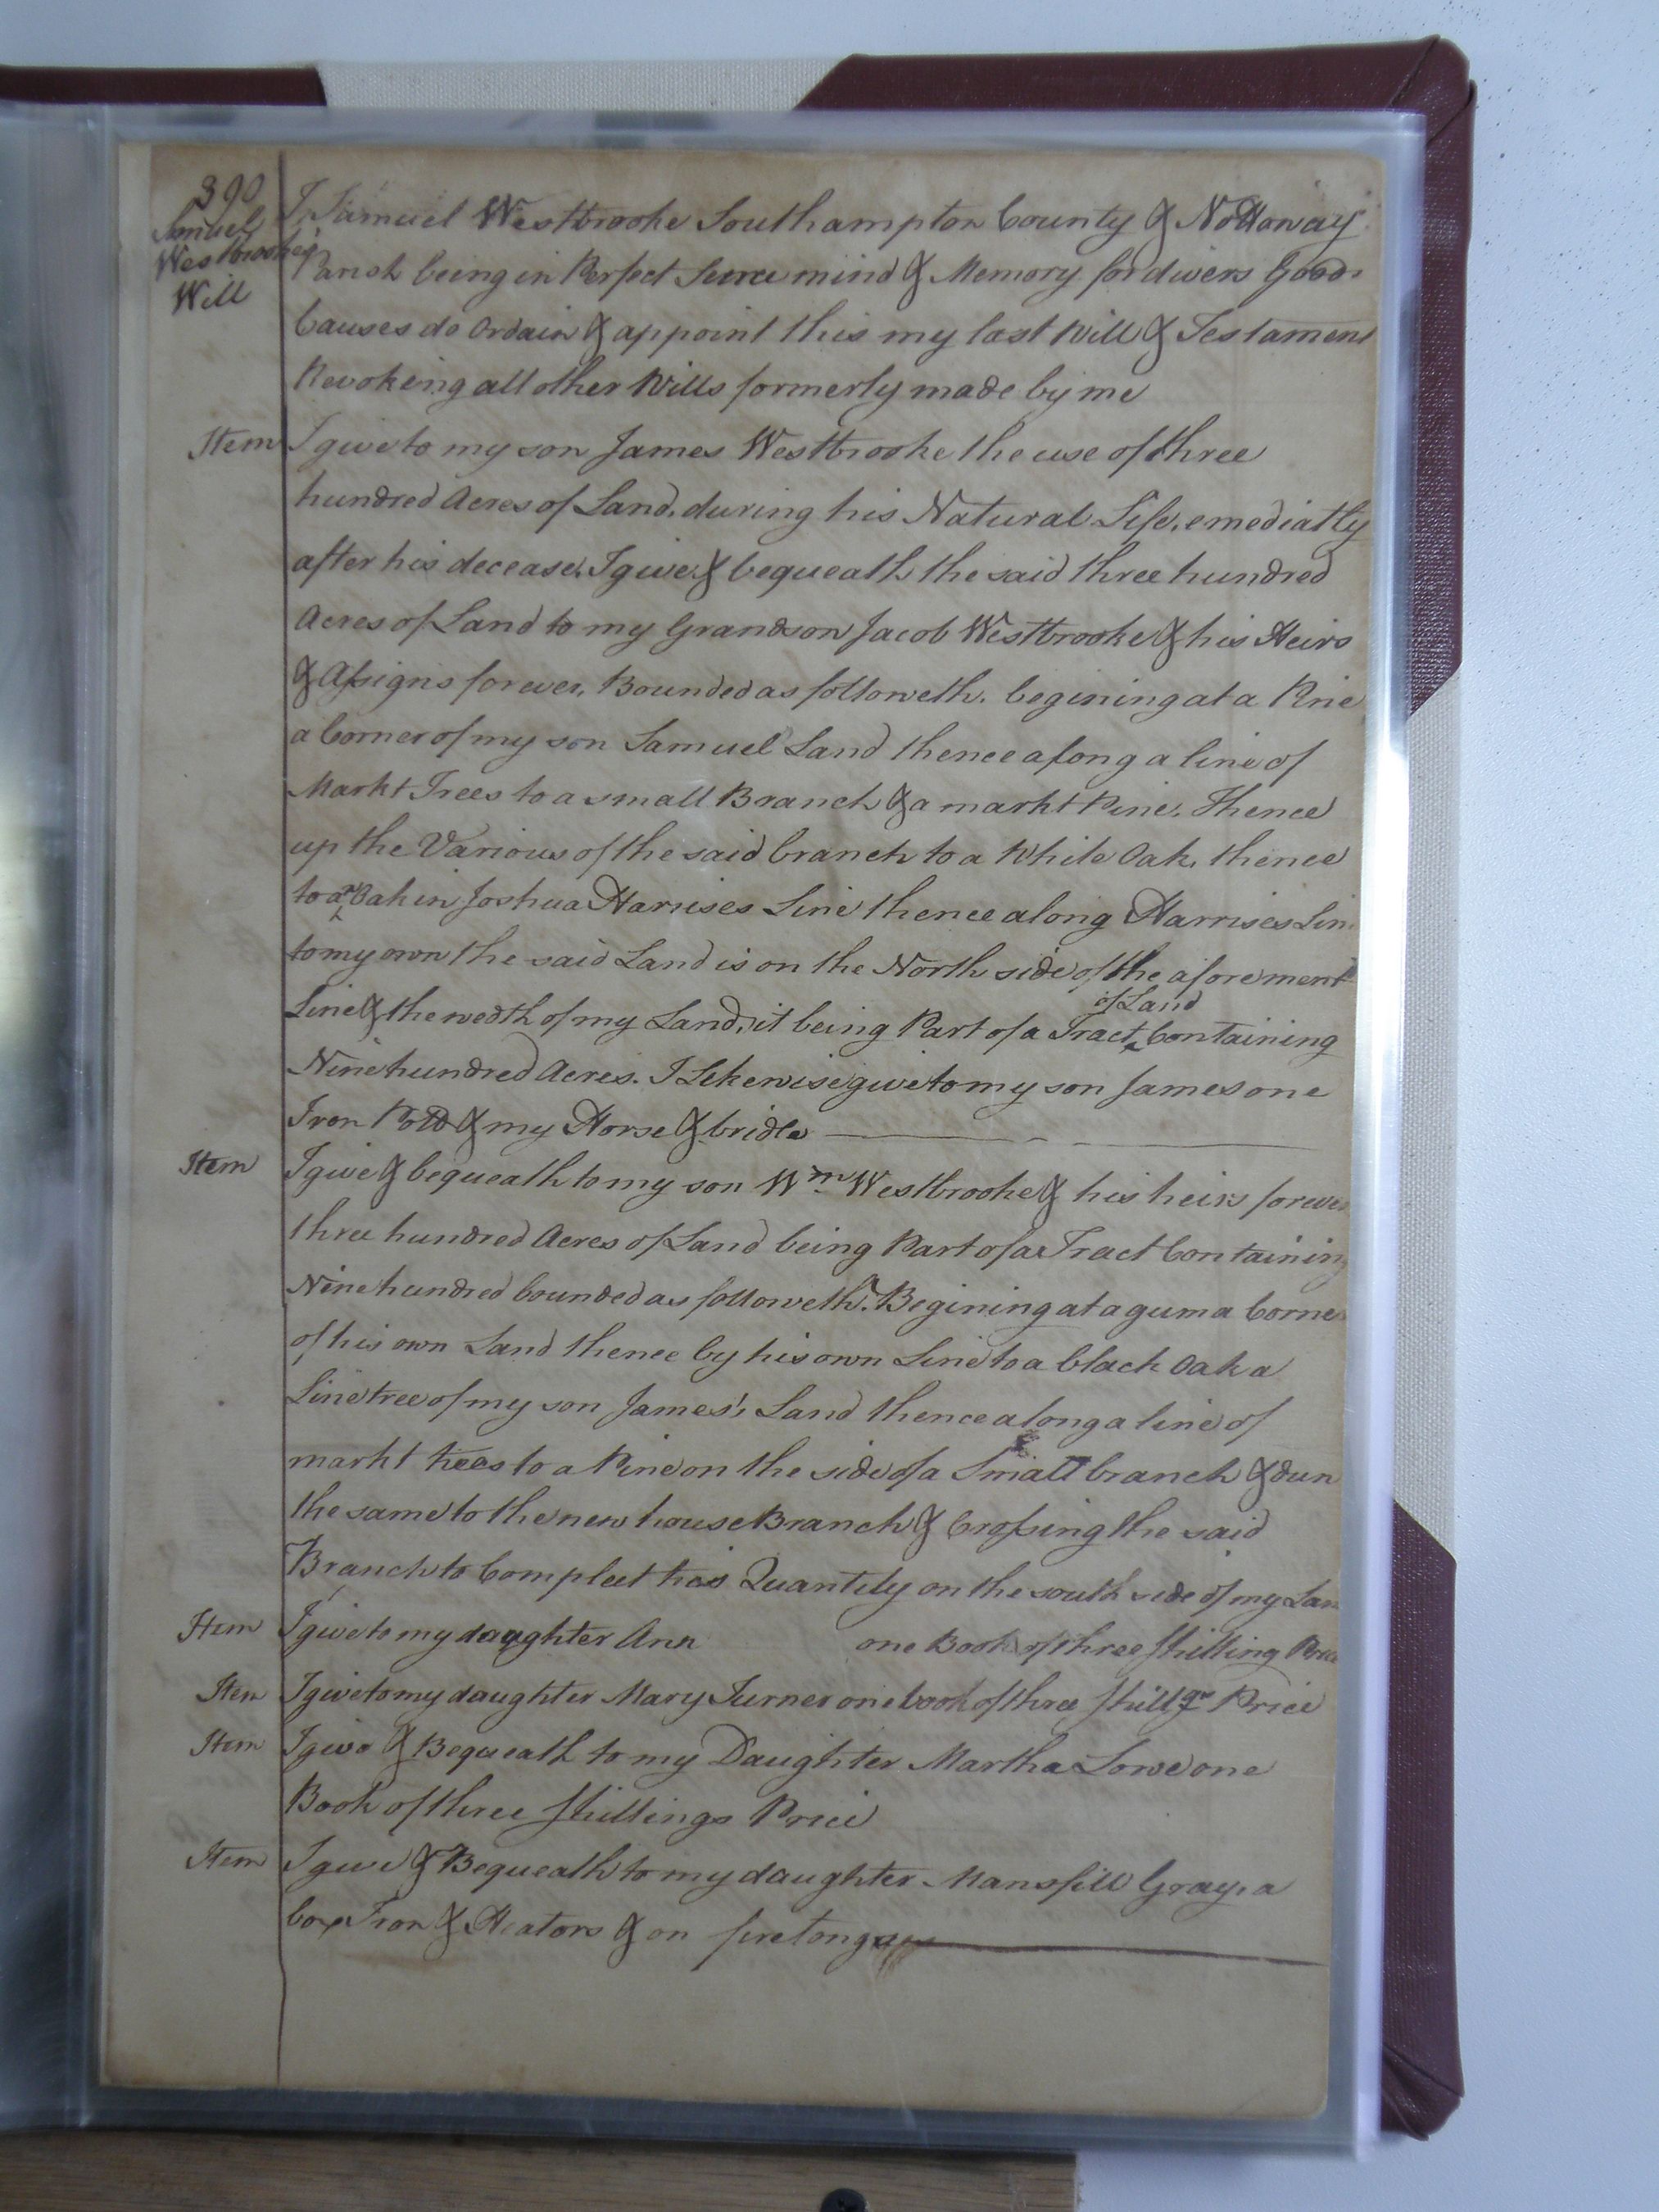 390
Samuel
Westbrookes
Will
I, Samuel Westbrooke Southampton County & Nottoway
Parish being in Perfect Sence mind & Memory for divers Good
Causes do Ordain & appoint this my last Will & Testament
Revokeing all other Wills formerly made by me
Item I give to my son James Westbrooke the use of three
hundred Acres of Land, during his Natural Life, emediatly
after his decease, I give & bequeath the said three hundred
Acres of Land to my Grandson Jacob Westbrooke & his Heirs
& Assigns forever, Bounded as followeth, begining at a Pine
a Corner of my son Samuel Land thence along a line of
Markt Trees to a small Branch & a markt Pine, Thence
up the Various of the said branch to a White Oak, thence
to a Oak in Joshua Harrises Line thence along Harrises Lin
to my own the said Land is on the North side of the aforement
Line & the wedth of my Land, it being Part of a Tract of Land Containing
Nine hundred Acres. I Lekewise give to my son James one
Iron Pott & my Horse & bridle
Item I give & bequeath to my son Wm Westbrooke & his heirs forever
three hundred Acres of Land being Part of a Tract Containing
Nine hundred bounded as followeth. Begining at a gum a Corne
of his own Land thence by his own Line to a black Oak a
Line tree of my son James's Land thence along a line of
markt trees to a Pine on the side of a Small branch & dun
the same to the new house Branch & Crossing the said
Branch to Compleet his Quantity on the south side of my Lan
Item I give to my daughter Ann one Book of three Shilling Price
Item I give to my daughter Mary Turner one book of three Shillgs Price
Item I give & Bequeath to my Daughter Martha Lowe one
Book of three Shillings Price
Item I give & Bequeath to my daughter Mansfill Gray, a
box Iron & Heators & on fire tongs